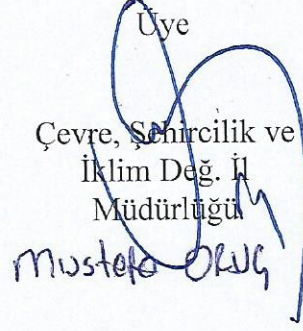 Üye
Çevre, Şehircilik ve
İklim Değ. İl
Müdürlüğü
Mustafa ORUÇ